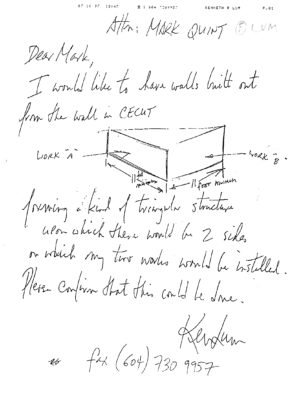 KENNETH R LUM P.01
Attn: MARK QUINT
Dear Mark,
I would like to have walls built out
from the wall in CECUT
WORK "A"
WORK "B"
11 foot minimum
forming a kind of triangular structure
upon which there would be 2 sides
on which my two works would be installed.
Please confirm that this could be done.
Ken Lum
fax (604) 730 9957